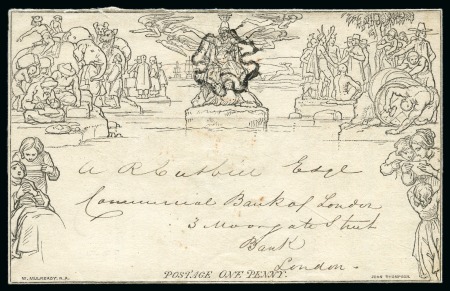 A R Cutbill Esqr
Commercial Bank of London
3 Moorgate Street
Bank
London
W. MULREADY, R.A.
POSTAGE ONE PENNY.
JOHN THOMPSON.